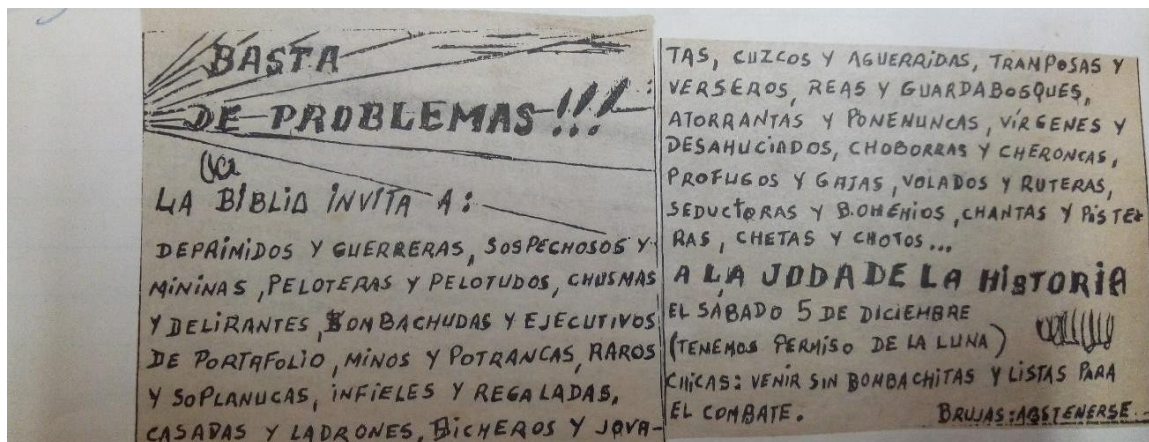 BASTA
DE PROBLEMAS!!!
LA BIBLIA INVITA A:
DEPRIMIDOS Y GUERRERAS, SOSPECHOSOS Y
MININAS, PELOTERAS Y PELOTUDOS, CHUSMAS
Y DELIRANTES, BOMBACHUDAS Y EJECUTIVOS
DE PORTAFOLIO, MINOS Y POTRANCAS, RAROS
Y SOPLANUCAS, INFIELES Y REGALADAS,
CASADAS Y LADRONES, BICHEROS Y JOVA-
TAS, CUZCOS Y AGUERRIDAS, TRANPOSAS Y
VERSEROS, REAS Y GUARDABOSQUES,
ATORRANTAS Y PONENUNCAS, VÍRGENES Y
DESAHUCIADOS, CHOBORRAS Y CHERONCAS,
PROFUGOS Y GATAS, VOLADOS Y RUTERAS,
SEDUCTORAS Y BOHEMIOS, CHANTAS Y PISTE-
RAS, CHETAS Y CHOTOS...
A LA JODA DE LA HISTORIA
EL SÁBADO 5 DE DICIEMBRE
(TENEMOS PERMISO DE LA LUNA)
CHICAS: VENIR SIN BOMBACHITAS Y LISTAS PARA
EL COMBATE.
BRUJAS: ABSTENERSE.